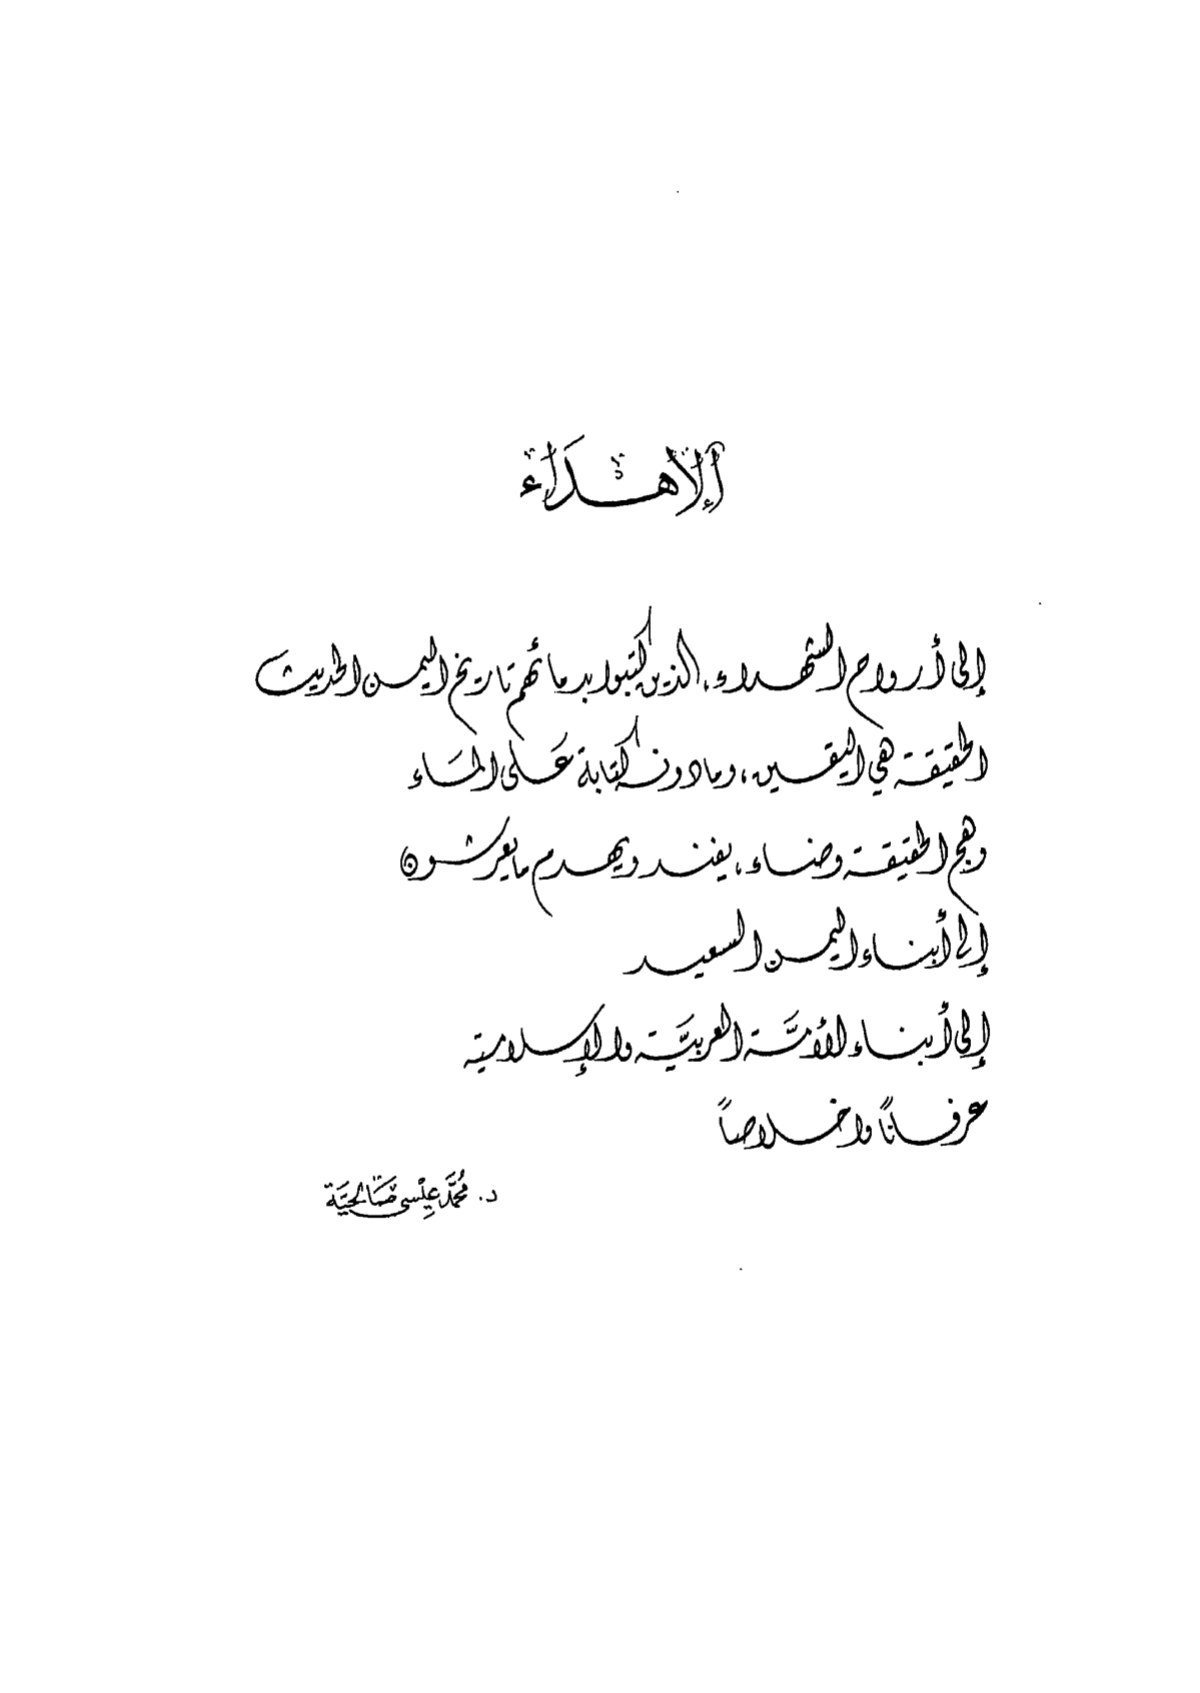 الإهداء
إلى أرواح الشهداء، الذين كتبوا بدمائهم تاريخ اليمن الحديث
الحقيقة هي اليقين، وما دونه كتابة على الماء
وهج الحقيقة وضاء، يفند ويهدم ما يعرشون
إلى أبناء اليمن السعيد
إلى أبناء الأمة العربيَّة والإسلامية
عرفاناً واخلاصاً
د. محمَّد عيسى صَالحيَّة